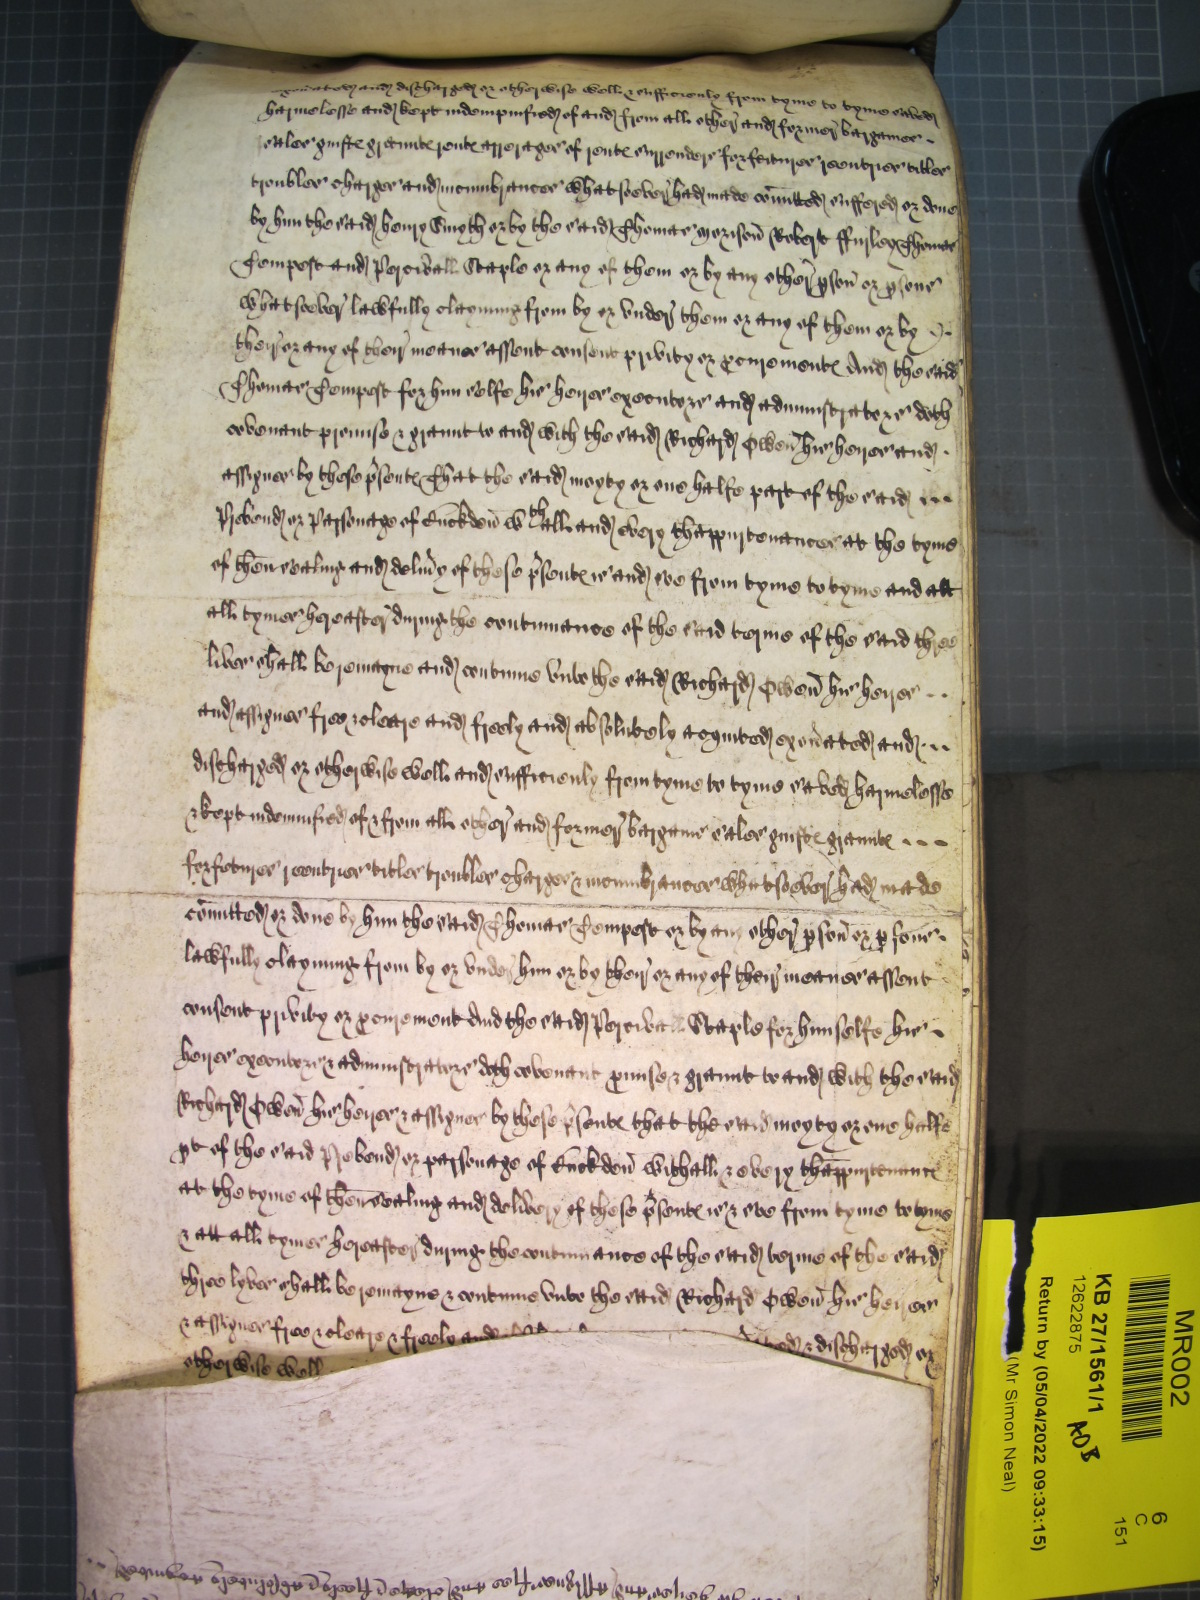 and discharged or otherwise well & sufficienly from tyme to tyme saved
harmelesse and kept indempnified of and from all other and former bargaines
sales guiftes grauntes rentes arrerages of rentes surrenders forfeitures reentries titles
troubles charges and incumbrances whatsoever had made comitted suffered or done
by him the said henry Smyth or by the said Thomas Morison Robert ffurley Thomas
Compost and Percivall Staple or any of them or by any other pson or psons
whatsoever lawfully clayming from by or under them or any of them or by
their or any of their meanes assent consent privity or pcurementes And the said
Thomas Compost for him selfe his heires executors and administrators doth
covenant promise & graunt to and with the said Richard Owen his heires and
assignes by these psentes That the said moyty or one halfe part of the said
Prebend or Parsonage of Buckden wth all and every thappurtenances at the tyme
of thensealing and delivy of these psentes is and soe from tyme to tyme and att
all tymes hereafter during the continuance of the said terme of the said three
lives shall be remayne and continue unto the said Richard Owen his heires
and assignes free & cleare and freely and absolutely acquited exoñated and
discharged or otherwise well and sufficienly from tyme to tyme saved harmelesse
& kept indemnified of & from all other and former bargains sales guiftes grauntes
forfetures reentries titles troubles charges & incumbrances whatsoever had made
comitted or done by him the said Thomas Compost or by any other pson or psons
lawfully clayming from by or under him or by their or any of their meanes assent
consent privity or pcurement And the said Percivall Staple for himselfe his
heires executors & administrators doth covenant pmise & graunt to and with the said
Richard Owen his heires & assignes by these psentes that the said moyty or one halfe
pt of the said Prebend or parsonage of Buckden withall & every thappurtenances
at the tyme of thensealing and delivery of these psentes is & soe from tyme to tyme
& att all tymes hereafter during the continuance of the said terme of the said
three lyves shall be remayne & continue unto the said Richard Owen his heires
& assignes free & cleare & freely and & discharged or
otherwise well
MR002
KB 27/1561/1
12622875
AOB
6
C
151
Return by (05/04/2022 09:33:15)
(Mr Simon Neal)